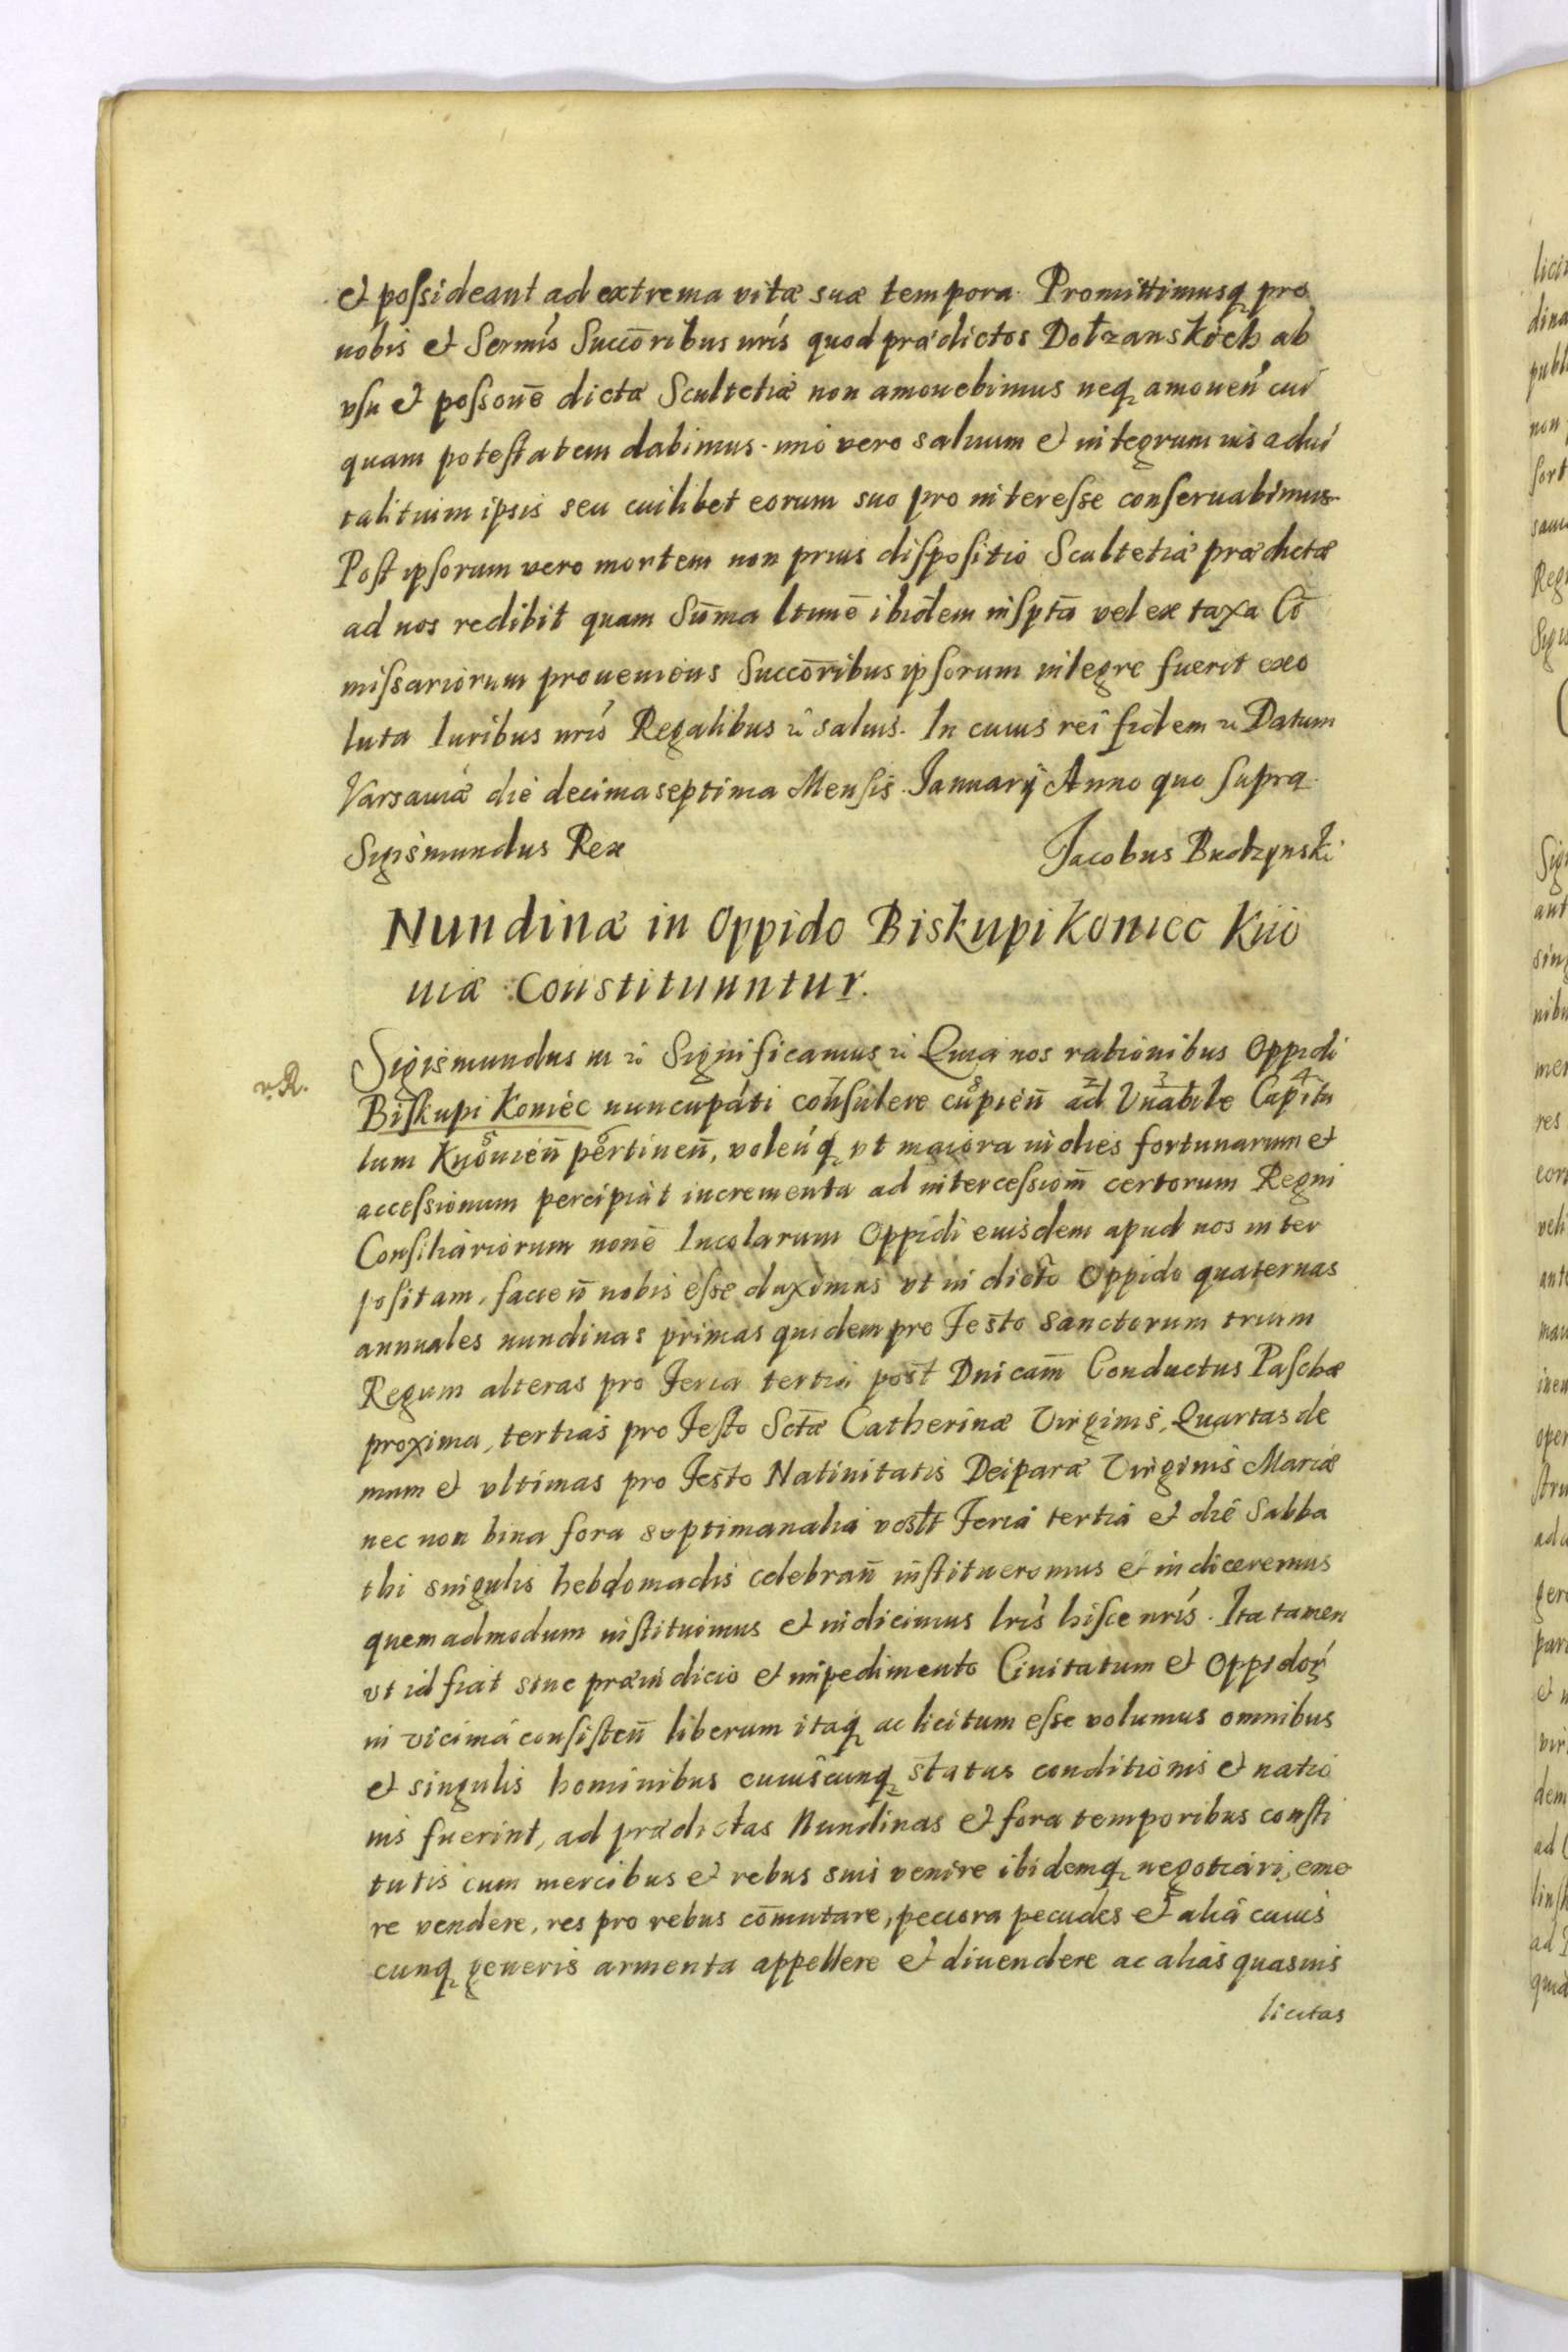 et possideant ad extrema vitæ suæ tempora. Promittimusq pro
nobis et Sermis Succōribus nris quod prædictos Dołzanskich ab
vsu et possonē dictæ Scultetiæ non amouebimus neq amouen cui
quam potestatem dabimus. imo vero saluum et integrum ius adui
talitium ipsis seu cuilibet eorum suo pro interesse conseruabimus
Post ipsorum vero mortem non prius dispositio Scultetiæ prædictæ
ad nos redibit quam Sūma ltimē ibidem insptā vel ex taxa Cō
missariorum proueniens Succōribus ipsorum integre fuerit exo
luta Iuribus nris Regalibus &c saluis. In cuius rei fidem &c Datum
Varsauiæ die decima septima Mensis Ianuarij Anno quo supra
Sigismundus Rex Jacobus Budzynski
Nundinæ in Oppido Biskupi Koniec Kiio
uiæ Constituuntur.
Sigismundus III &c Significamus &c Quia nos rationibus Oppidi
v. R.
Biskupi Koniec nuncupati consulere cupien ad Vnabile Capitu
2 3 4 7 8
lum Kyouien pertinen, volenq vt maiora in dies fortunarum et
5 6
accessionum percipiat incrementa ad intercessiom certorum Regni
Consiliariorum nonē Incolarum Oppidi eiusdem apud nos inter
positam, facien nobis esse duximus vt in dicto Oppido quaternas
annuales nundinas primas quidem pro Festo Sanctorum trium
Regum alteras pro Feria tertia post Dnicam Conductus Paschæ
proxima, tertias pro Festo Sctæ Catherinæ Virginis, Quartas de
mum et vltimas pro Festo Natiuitatis Deiparæ Virginis Mariæ
nec non bina fora septimanalia Feria tertia et die Sabba
thi singulis hebdomadis celebran institueremus et indiceremus
quemadmodum instituimus et indicimus lris hisce nris. Ita tamen
vt id fiat sine præiudicio et impedimento Ciuitatum et Oppidor
in vicinia consisten liberum itaq ac licitum esse volumus omnibus
et singulis hominibus cuiuscunq status conditionis et natio
nis fuerint, ad prædictas Nundinas et fora temporibus consti
tutis cum mercibus et rebus suis venire ibidemq negotiari, eme
re vendere, res pro rebus cōmutare, peccora pecudes et alia cuius
cunq generis armenta appellere et diuendere ac alias quasuis
licitas